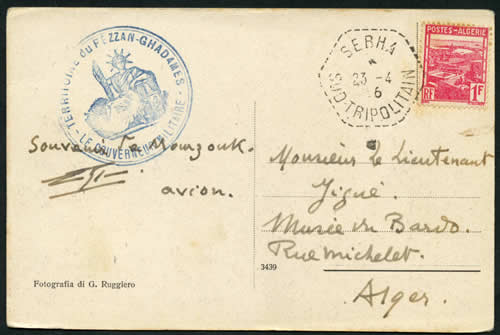 TERRITOIRE du FEZZAN-GHADAMES
- LE GOUVERNEUR MILITAIRE -
SEBHA
23 -4
SUD-TRIPOLITAIN
POSTES-ALGERIE
RF 1F
Souvenir de Mourzouk.
avion.
Monsieur le Lieutenant
Musée du Bardo.
Rue Michelet.
Alger.
3439
Fotografia di G. Ruggiero